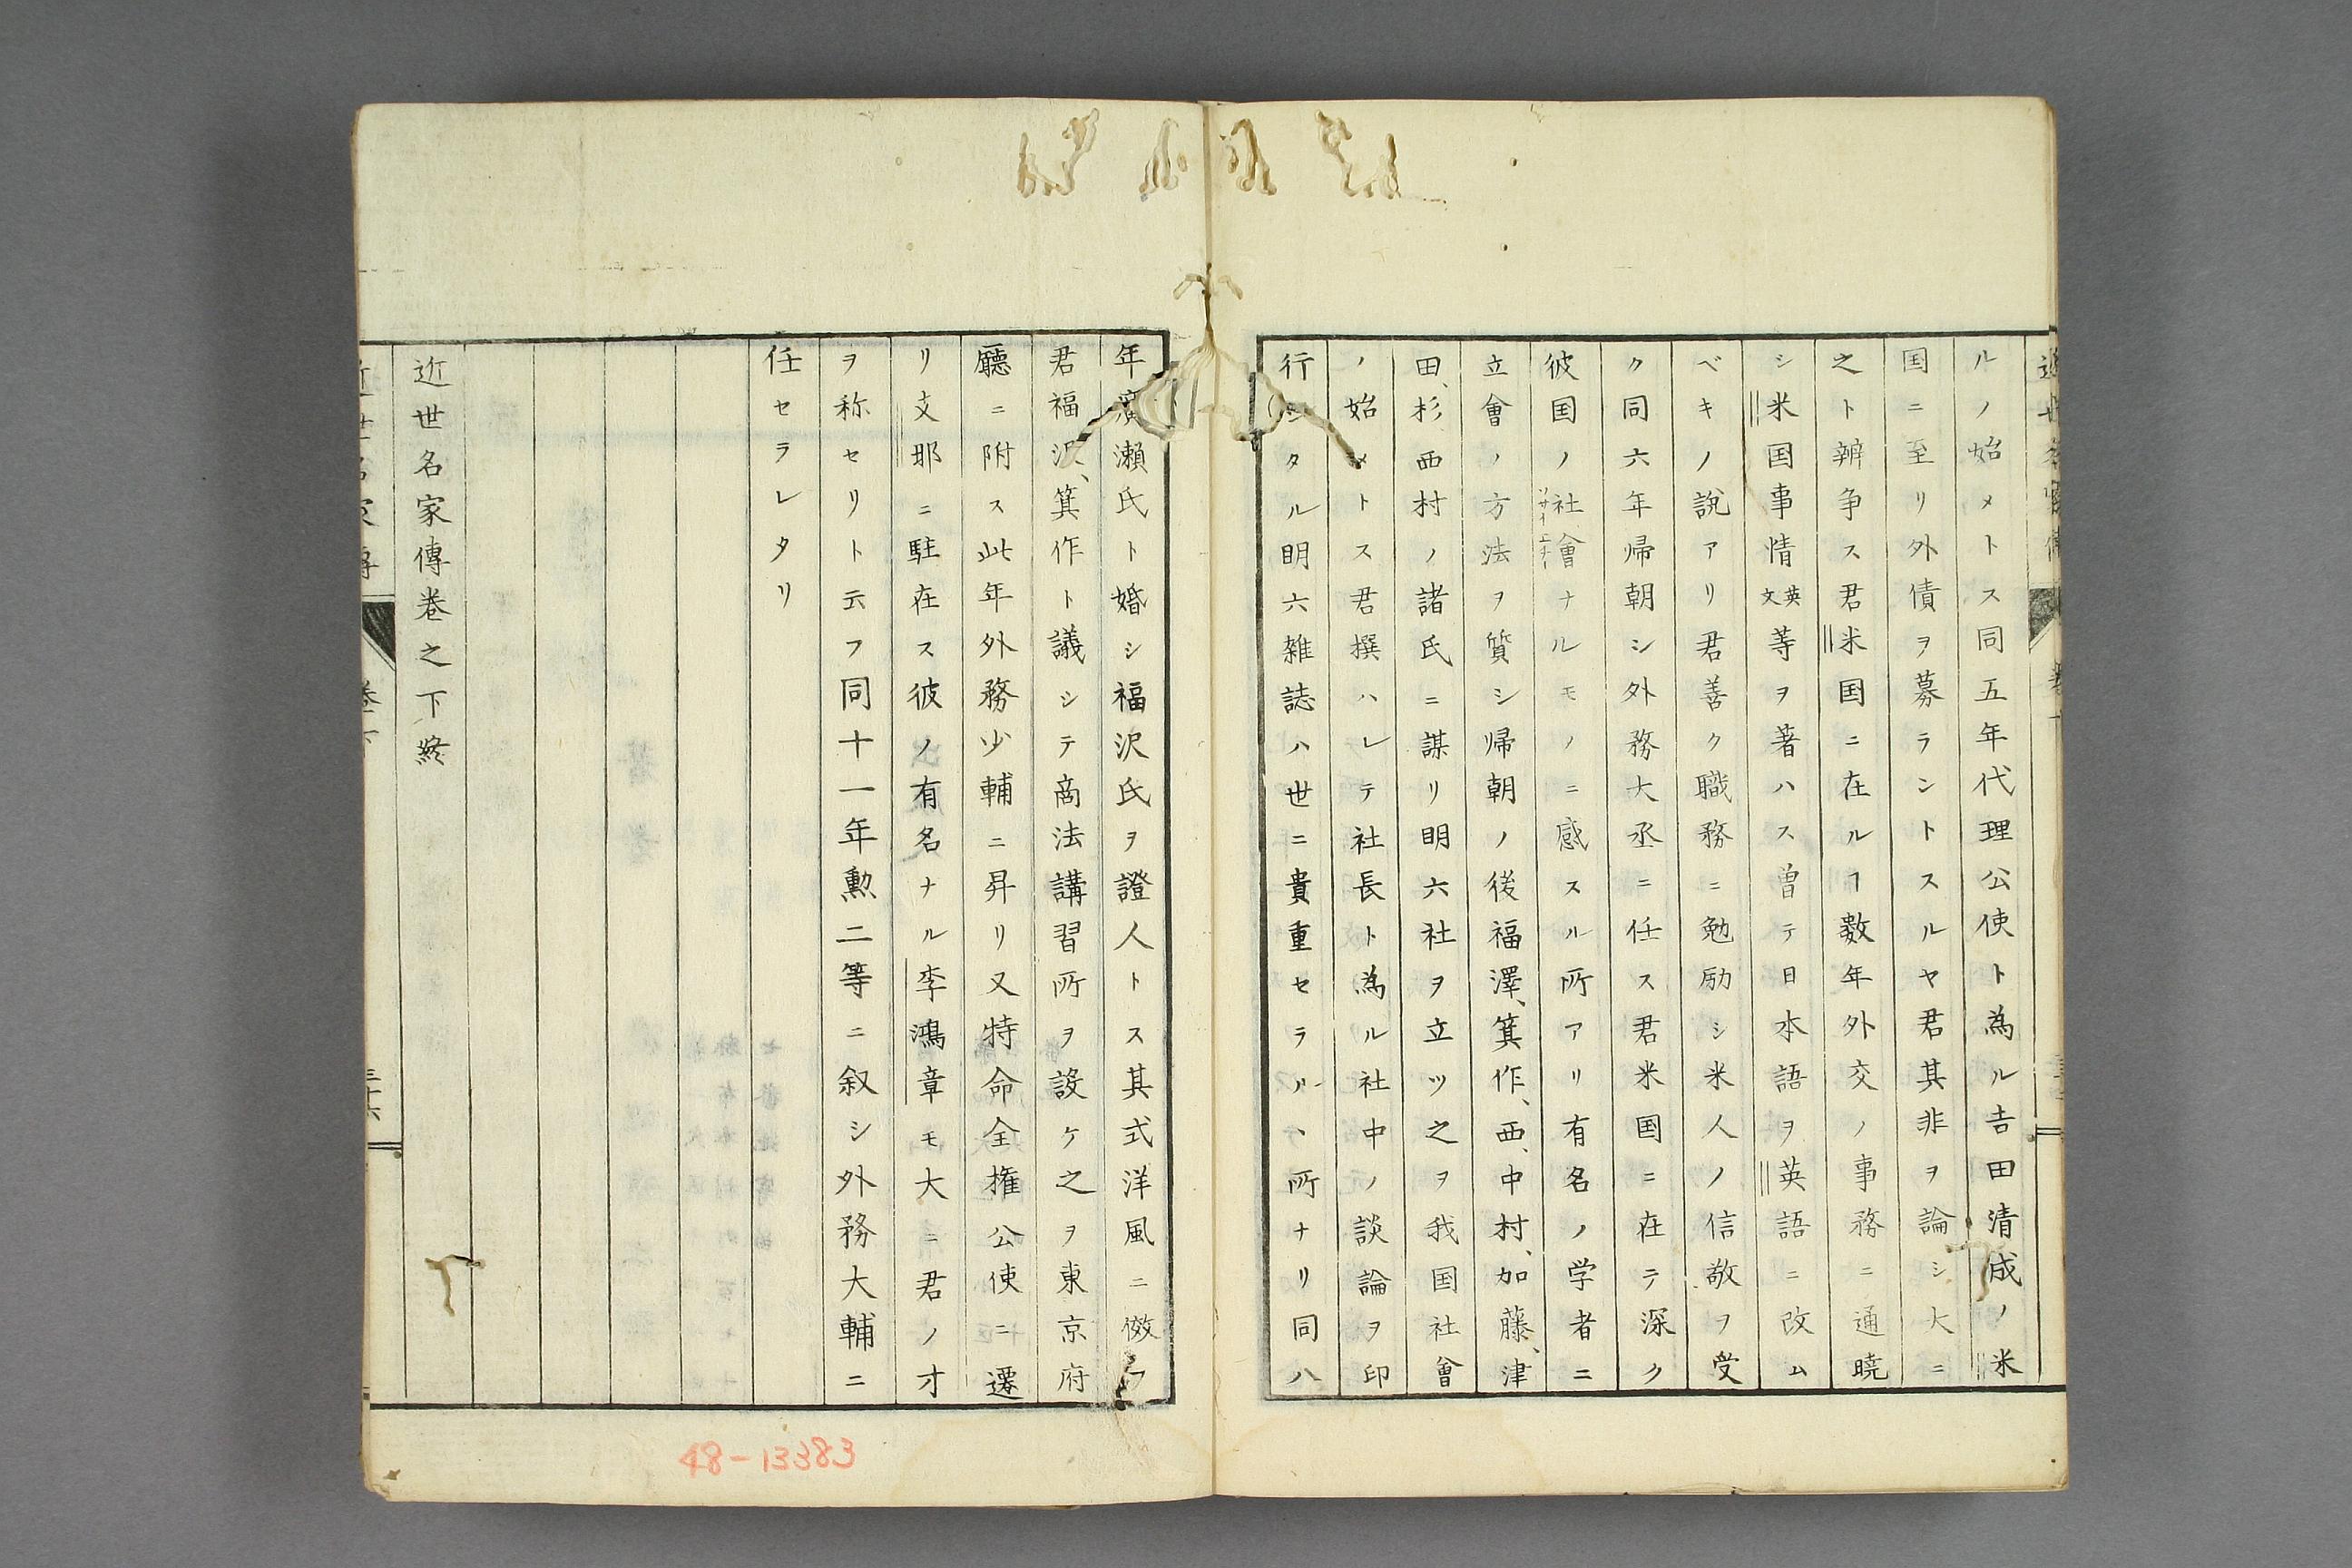 ルノ始メトス同五年代理公使ト為ル吉田清成ノ米
国ニ至リ外債ヲ募ラントスルヤ君其非ヲ論シ大ニ
之ト辨争ス君米国ニ在ルヿ数年外交ノ事務ニ通暁
シ米国事情英文等ヲ著ハス曽テ日本語ヲ英語ニ改ム
ベキノ説アリ君善ク職務ニ勉励シ米人ノ信敬ヲ受
ク同六年帰朝シ外務大丞ニ任ス君米国ニ在テ深ク
彼国ノ社會ナルモノニ感スル所アリ有名ノ学者ニ
ソサイエチー
立會ノ方法ヲ質シ帰朝ノ後福澤、箕作、西、中村、加藤、津
田、杉、西村ノ諸氏ニ謀リ明六社ヲ立ツ之ヲ我国社會
ノ始メトス君撰ハレテ社長ト為ル社中ノ談論ヲ印
行シタル明六雑誌ハ世ニ貴重セラル、所ナリ同八
年廣瀬氏ト婚シ福沢氏ヲ證人トス其式洋風ニ倣フ
君福沢、箕作ト議シテ商法講習所ヲ設ケ之ヲ東京府
廳ニ附ス此年外務少輔ニ昇リ又特命全権公使ニ遷
リ支那ニ駐在ス彼ノ有名ナル李鴻章モ大ニ君ノ才
ヲ称セリト云フ同十一年勲二等ニ叙シ外務大輔ニ
任セラレタリ
近世名家傳巻之下終
三十六
48-13383